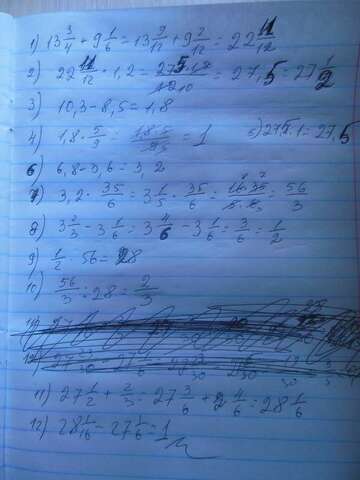 1) 13 3/4 + 9 1/6 = 13 9/12 + 9 2/12 = 22 11/12
2) 22 11/12 · 1,2 = 275·12/12·10 = 27,5 = 27 1/2
3) 10,3 - 8,5 = 1,8
4) 1,8 · 5/9 = = 1 5) 27,5 : 1 = 27,5
6) 6,8 - 3,6 = 3,2
7) 3,2 · 35/6 = 3 1/5 · 35/6 = 16·35/5·6 = 56/3
8) 3 2/3 - 3 1/6 = 3 4/6 - 3 1/6 = 3/6 = 1/2
9) 1/2 · 56 = 28
10) 56/3 : 28 = 2/3
11) 27 1/2 + 2/3 = 27 3/6 + 4/6 = 28 1/6
12) 28 1/6 - 27 1/6 = 1